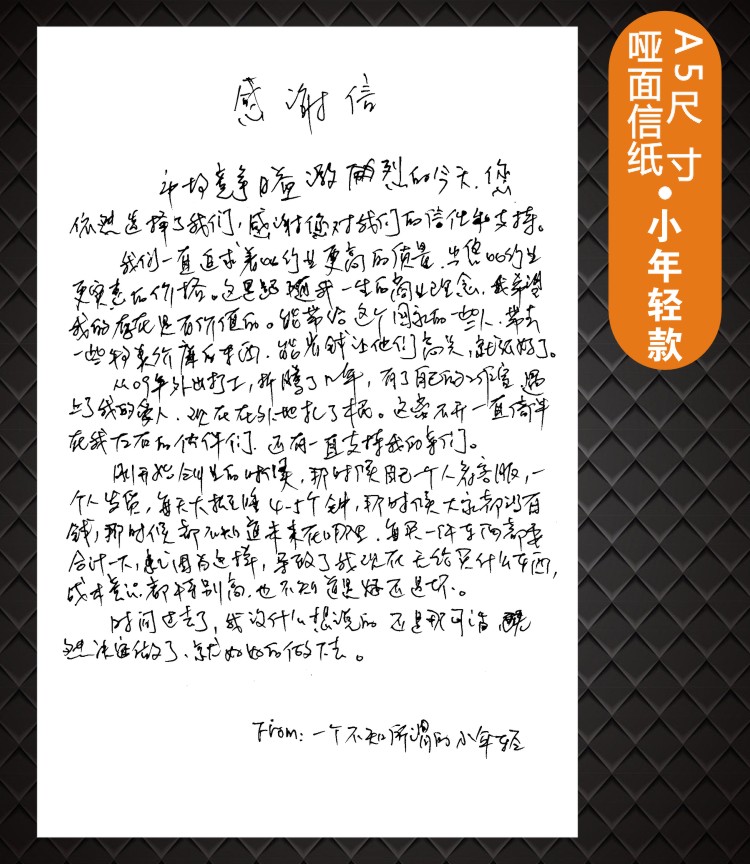 感谢信
市场竞争日益激烈的今天，您
依然选择了我们，感谢您对我们的信任和支持。
我们一直追求着以行业更高的质量，与您以行业
更实惠的价格。这是跟随我一生的商业理念，我希望
我的存在是有价值的。能带给这个国家的一些人，带去
一些物美价廉的东西，能省钱让他们高兴，就很好了。
从09年外出打工，折腾了几年，有了自己的工作室，遇
上了我的爱人，现在在外地扎了根。这离不开一直陪伴
在我左右的伙伴们，还有一直支持我的亲们。
刚开始创业的时候，那时候自己一个人兼客服，一
个人发货，每天大概睡4-5个钟，那时候大家都没有
钱，那时候都不知道未来在哪里，每买一件东西都要
合计一下，也因为这样，导致了我现在无论买什么东西，
成本意识都特别高，也不知道是好还是坏。
时间过去了，我没什么想说的，还是那句话，既
然决定做了，就好好的做下去。
From：一个不知所谓的小年轻
A5尺寸
哑面信纸
•小年轻款